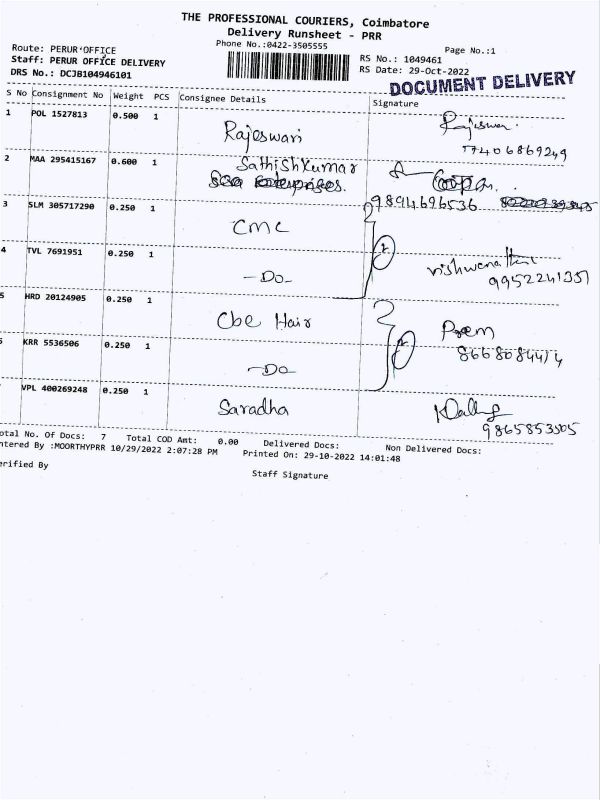 THE PROFESSIONAL COURIERS, Coimbatore
Delivery Runsheet - PRR
Phone No.:0422-3505555
Page No.:1
Route: PERUR'OFFICE
Staff: PERUR OFFICE DELIVERY
DRS No.: DCJB104946101
RS No.: 1049461
RS Date: 29-Oct-2022
DOCUMENT DELIVERY
S No Consignment No Weight PCS Consignee Details Signature
1 POL 1527813 0.500 1 Rajeswari
77406869249
2 MAA 295415167 0.600 1 Sathishkumar
9894696536
3 SLM 305717290 0.250 1 CMC
2
4 TVL 7691951 0.250 1 -Do-
9952241357
5 HRD 20124905 0.250 1 Cbe Hair
Prem
KRR 5536506 0.250 1 -Do
VPL 400269248 0.250 1 Saradha
9865853505
otal No. Of Docs: 7 Total COD Amt: 0.00 Delivered Docs: Non Delivered Docs:
ntered By :MOORTHYPRR 10/29/2022 2:07:28 PM Printed On: 29-10-2022 14:01:48
erified By
Staff Signature